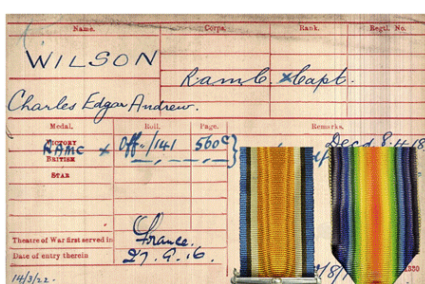 Name. Corps. Rank. Regtl. No.
WILSON
R.a.m.C. x Capt.
Charles Edgar Andrew.
Medal. Roll. Page. Remarks.
VICTORY Off./141 560C Decd 8.4.18
RAMC x
BRITISH
STAR
Theatre of War first served in France.
Date of entry therein 27.9.16.
14/3/22.